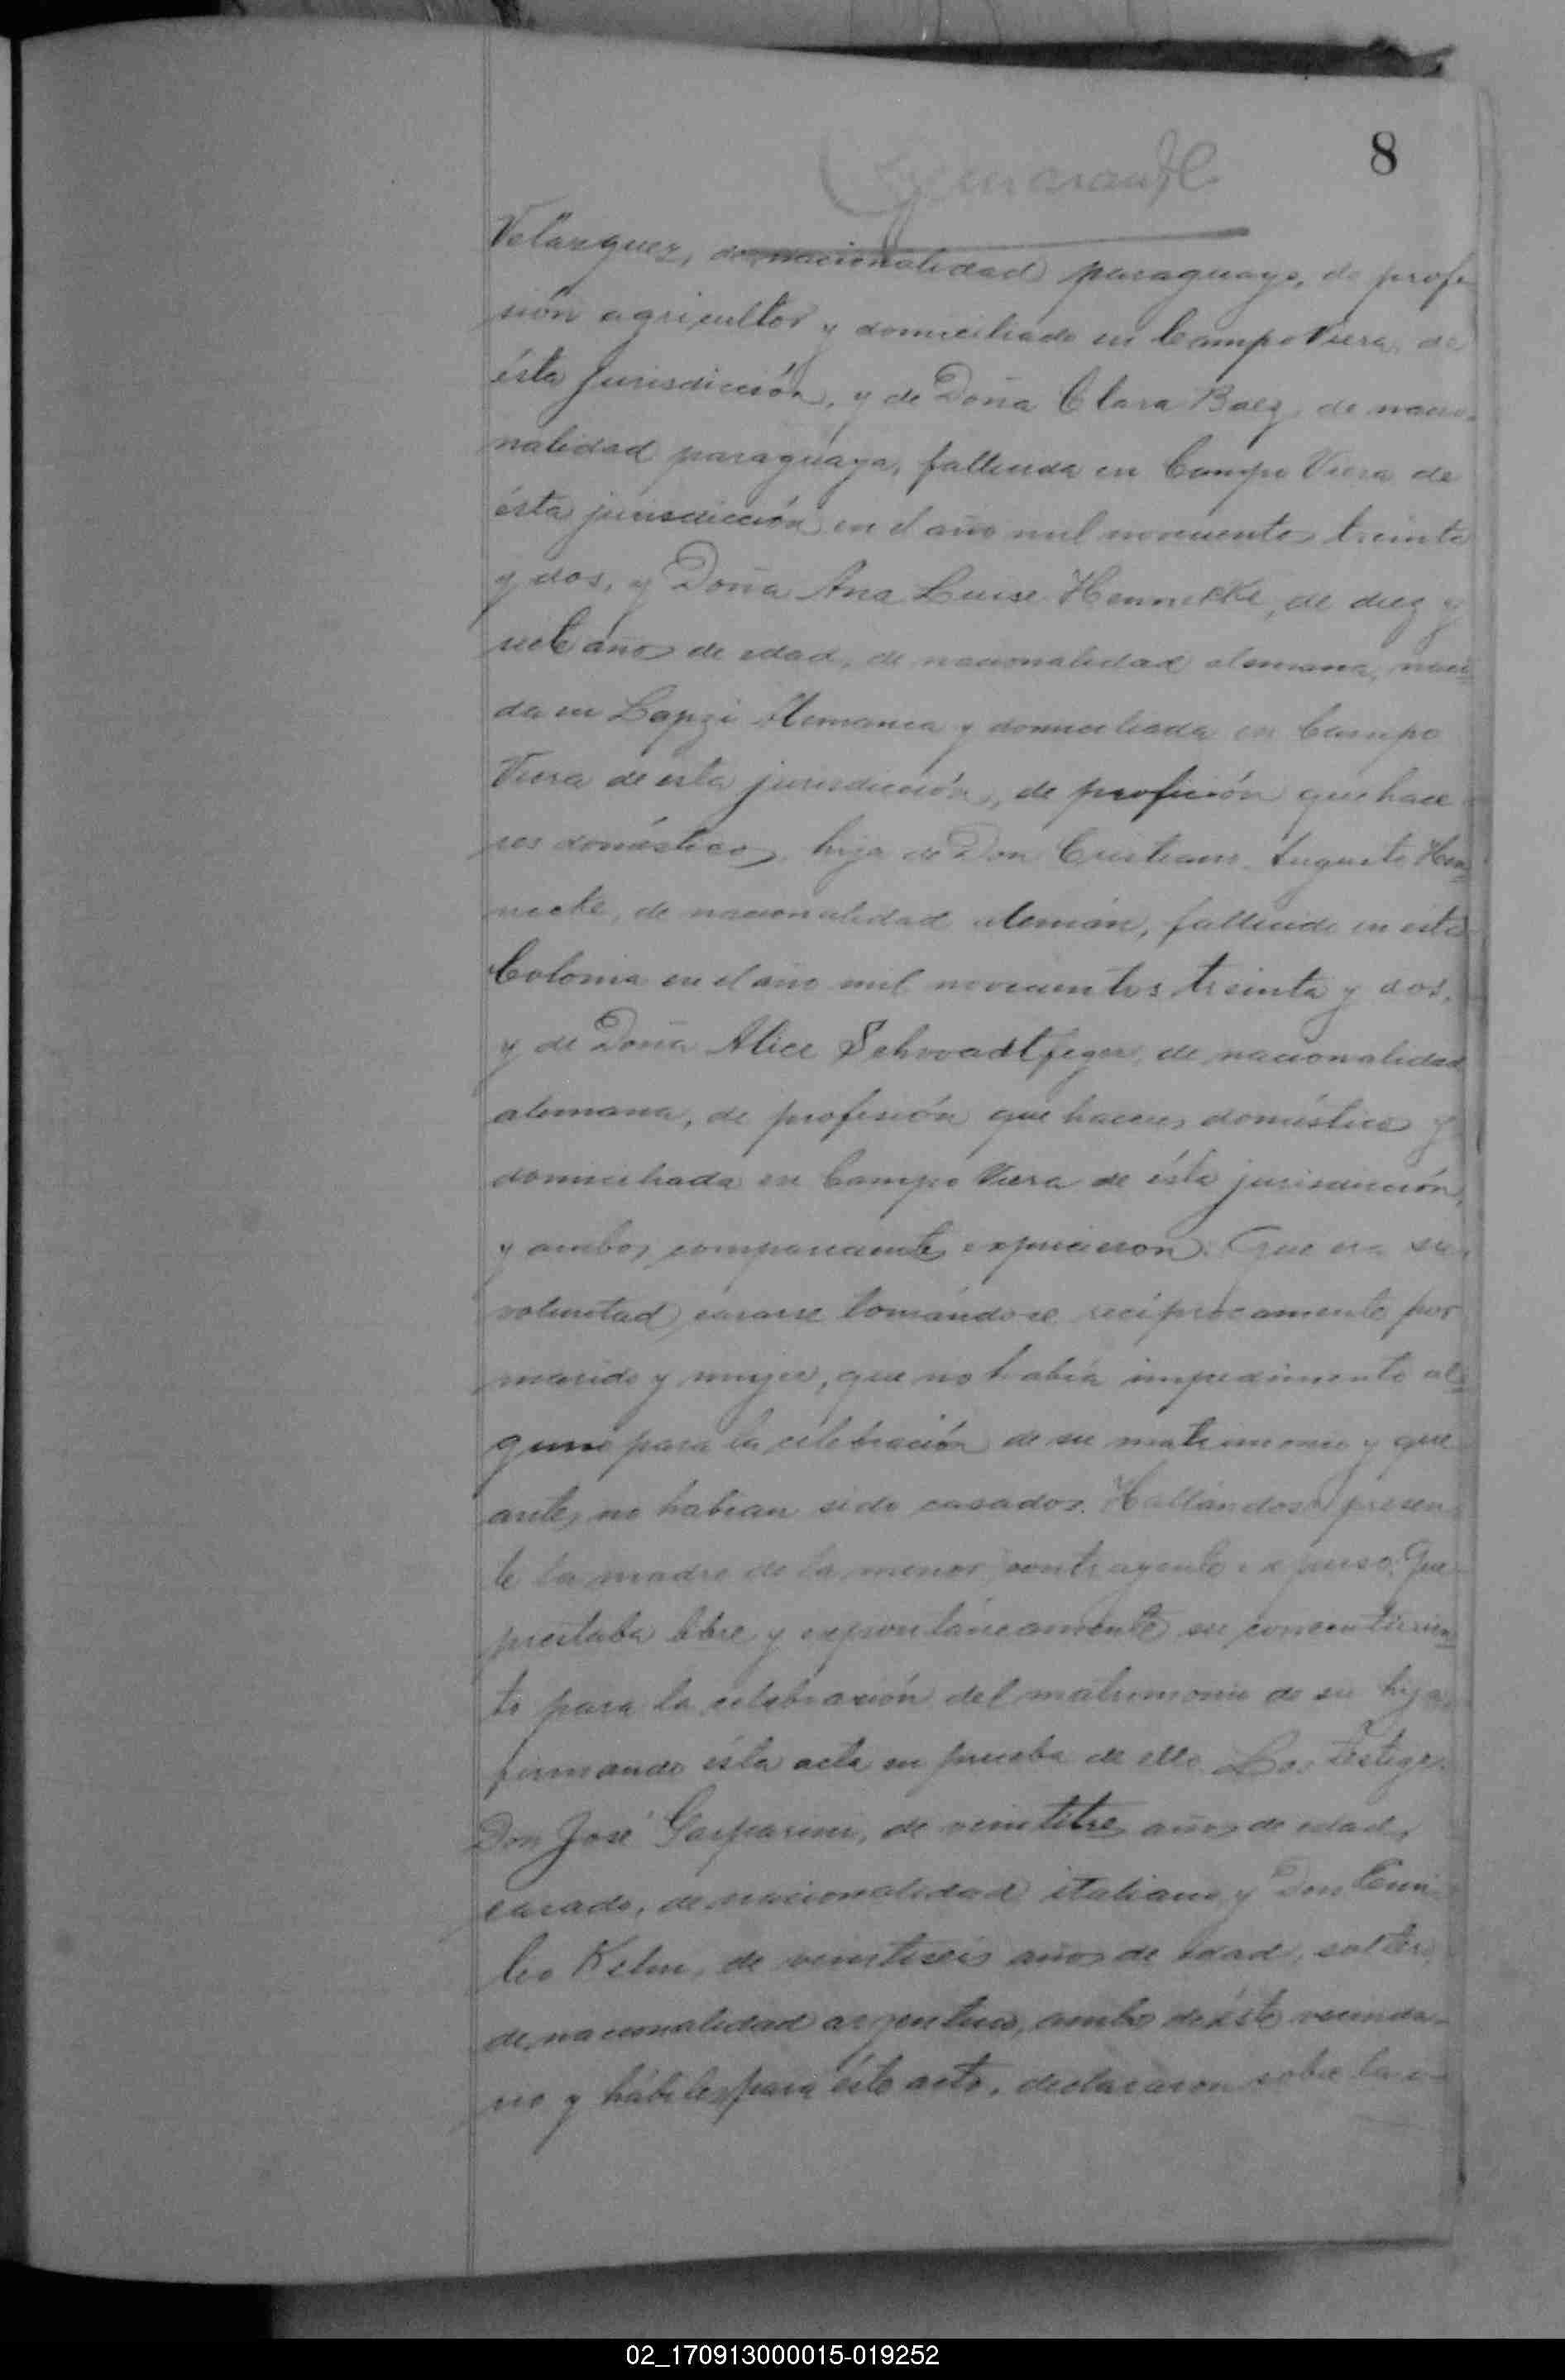 8
Velazquez, de nacionalidad paraguayo, de profe
sión agricultor y domiciliado en Campo Viera, de
ésta jurisdicción, y de Doña Clara Baez, de nacio-
nalidad paraguaya, fallecida en Campo Viera de
ésta jurisdicción en el año mil novecientos treinta
y dos, y Doña Ana Luise Hennekke, de diez y
siete años de edad, de nacionalidad alemana, naci-
da en Lapzi Alemania y domiciliada en Campo
Viera de esta jurisdicción, de profición que hace
res domésticos, hija de Don Cristiano Augusto Hen-
necke, de nacionalidad alemán, fallecido en esta
Colonia en el año mil novecientos treinta y dos,
y de Doña Alice Schwadtfeger, de nacionalidad
alemana, de profesión que haceres domésticos y
domiciliada en Campo Viera de ésta jurisdicción,
y ambos comparecientes expusieron: Que era su
voluntad casarse tomándose recíprocamente por
marido y mujer, que no había impedimento al-
guno para la celebración de su matrimonio y que
antes no habían sido casados. Hallándose presen-
te la madre de la menor contrayente expuso: Que
prestaba libre y expontáneamente su consentimien-
to para la celebración del matrimonio de su hija
firmando ésta acta en prueba de ello. Los testigos
Don José Gasparini, de veintitres años de edad,
casado, de nacionalidad italiano y Don Emi-
lio Kelm, de veintiseis años de edad, soltero,
de nacionalidad argentino, ambos de éste vecinda-
rio y hábiles para éste acto, declararon sobre la i-
02_170913000015-019252